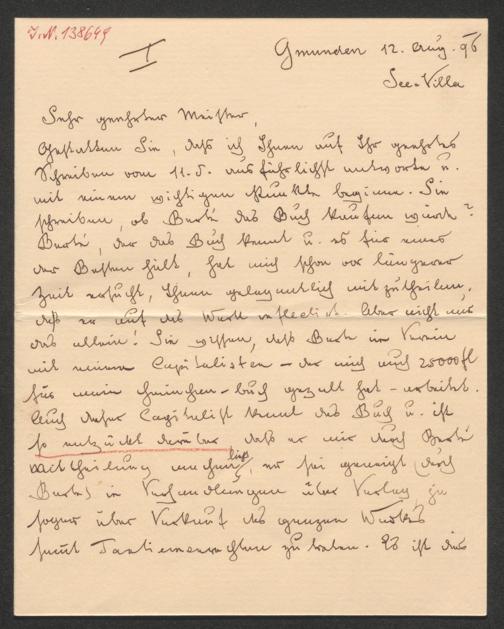 J.N. 138649
I
Gmunden 12. Aug. 96
See-Villa
Sehr geehrter Meister,
Gestatten Sie, daß ich Ihnen auf Ihr geehrtes
Schreiben vom 11. d. ausführlichst antworte u.
mit einem wichtigen Punkte beginne. Sie
schreiben, ob Berté das Buch kaufen würde?
Berté, der das Buch kennt u. es für eines
der Besten hält, hat mich schon vor längerer
Zeit ersucht, Ihnen gelegentlich mitzutheilen,
daß er auf das Werk reflectirt. Aber nicht nur
das allein! Sie wissen, daß Berté im Verein
mit einem Capitalisten – der mir auch 25000 fl
für mein Heimchen-buch gezalt hat – arbeitet.
Auch dieser Capitalist kennt das Buch u. ist
so entzückt darüber, daß er mir durch Berté
Mittheilung machen ließ, er sei geneigt (durch
Berté) in Verhandlungen über Verlag, ja
sogar über Verkauf des ganzen Werkes
samt Tantiemenrechten zu treten. Es ist dies